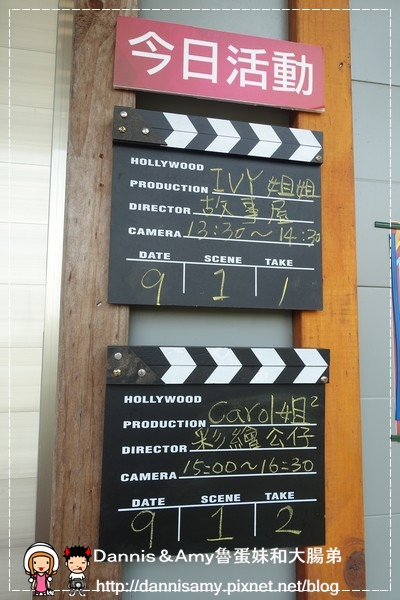 今日活動
HOLLYWOOD
PRODUCTION IVY姐姐
DIRECTOR 故事屋
CAMERA 13:30～14:30
DATE SCENE TAKE
9 1 1
HOLLYWOOD
PRODUCTION Carol姐2
DIRECTOR 彩繪公仔
CAMERA 15:00～16:30
DATE SCENE TAKE
9 1 2
Dannis＆Amy魯蛋妹和大腸弟
http://dannisamy.pixnet.net/blog